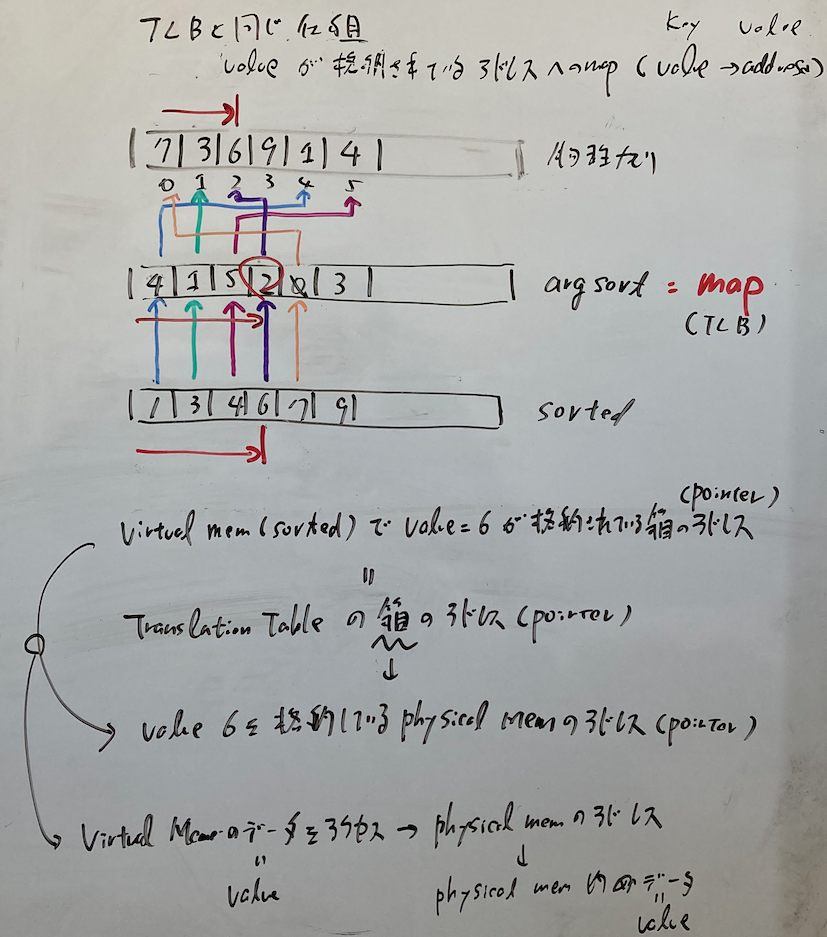 TLBと同じ仕組
key value
valueが格納されているアドレスへのmap (value→address)
7 | 3 | 6 | 9 | 1 | 4
物理なり
0 1 2 3 4 5
4 | 1 | 5 | 2 | 0 | 3
argsort = map
(TLB)
1 | 3 | 4 | 6 | 7 | 9
sorted
(pointer)
Virtual mem(sorted)でvalue=6が格納されている箱のアドレス
=
Translation Tableの箱のアドレス(pointer)
↓
value 6を格納しているphysical memのアドレス(pointer)
Virtual Memのデータをアクセス → physical memのアドレス
=
value
↓
physical mem 内のデータ
=
value